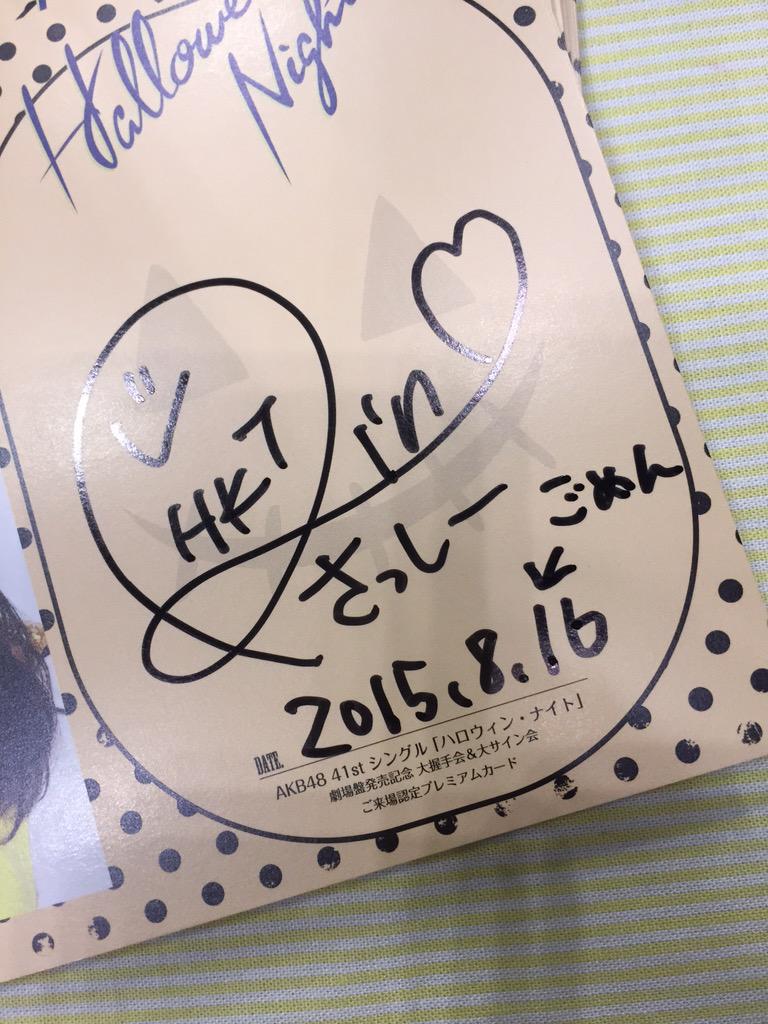 Hallowe
Nigh
HKT
in
さっしー
ごめん
2015.8.16
DATE.
AKB48 41st シングル「ハロウィン・ナイト」
劇場盤発売記念 大握手会&大サイン会
ご来場認定プレミアムカード